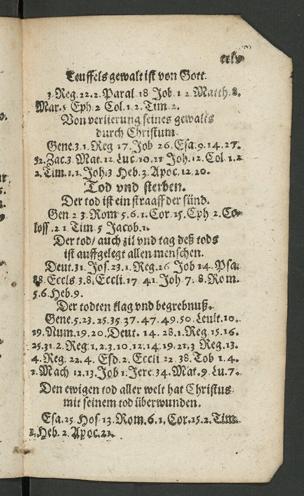 Teuffels gewalt ist von Gott.
3. Reg. 22. 2. Paral 18 Job. 1 2 Matth. 8.
Mar. 5 Eph 2 Col. 1. 2. Tim. 2.
Von verlierung seines gewalts
durch Christum.
Gene. 3. 1. Reg 17. Job 26. Esa. 9. 14. 27.
52. Zac. 3 Mat. 12 Luc. 10. 21 Joh. 12. Col 1. 2
2. Tim. 1. 1. Joh. 3 Heb. 3. Apoc. 12. 20.
Tod vnd sterben.
Der tod ist ein straaff der sünd.
Gen 2 3. Rom 5. 6. 1. Cor. 15. Eph 2. Co-
loss. 2 1 Tim 5 Jacob. 1.
Der tod/ auch zil vnd tag deß tods
ist auffgelegt allen menschen.
Deut. 31. Jos. 23. 1. Reg. 26 Job 14. Psa.
88. Eccls 3. 8. Eccli. 17 41. Joh. 7. 8. Rom.
5. 6. Heb. 9.
Der todten klag vnd begrebnuß.
Gene. 5. 23. 25. 35. 37. 47. 49. 50. Leuit. 10.
19. Num. 19. 20. Deut. 14. 28. 1. Reg 15. 16.
25. 31 2. Reg 1. 2. 3. 10. 12. 14. 19. 21. 3 Reg. 13.
4. Reg. 22. 4. Esd. 2. Eccli 22. 38. Tob 1. 4.
2. Mach 12. 13. Job 1. Jere 34. Mat. 9. Lu. 7.
Den ewigen tod aller welt hat Christus
mit seinem tod überwunden.
Esa. 25 Hos 13. Rom. 6. 1, Cor. 15. 2. Tim.
1, Heb. 2. Apoc. 21.